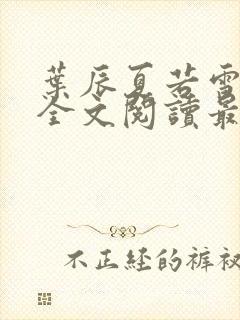 葉辰夏若雪
全文閱讀最
不正经的裤衩